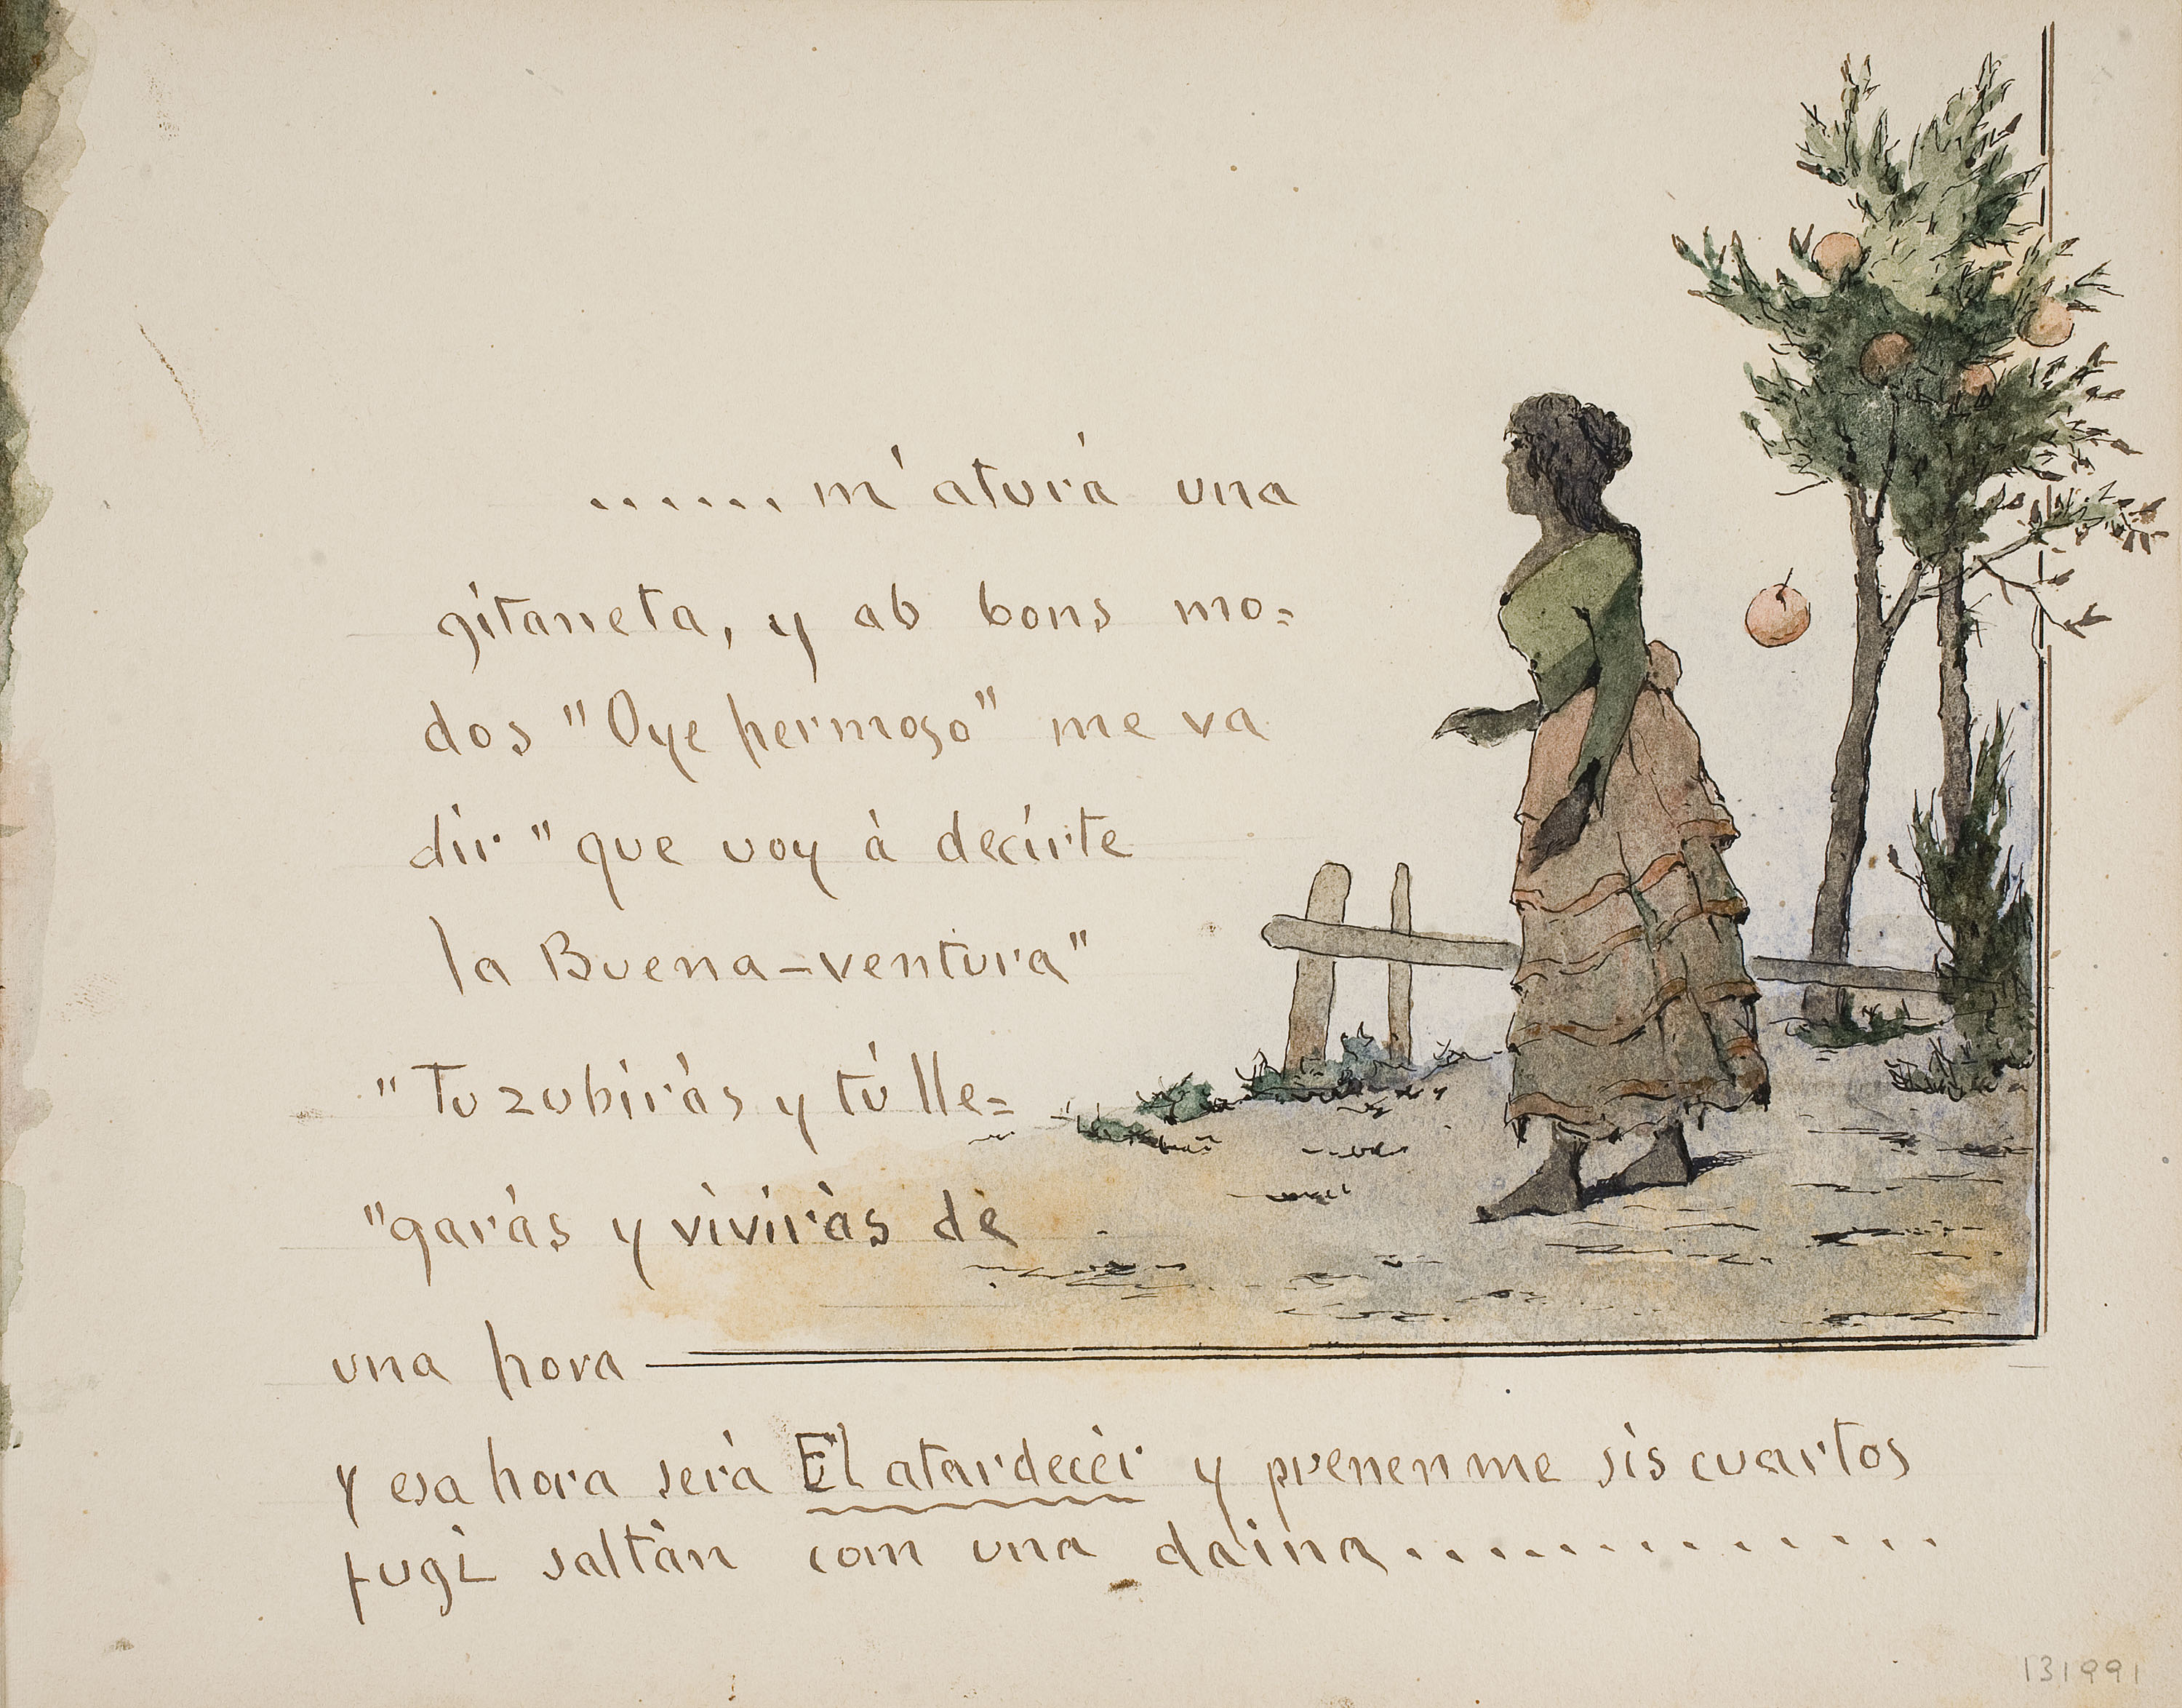 ...... m'aturá una
gitaneta, y ab bons mo=
dos "Oye hermoso" me va
dir "que voy á decirte
la Buena-ventura"
"Tu zubirás y tú lle=
"garás y vivirás de
una hora
y esa hora será El atardecer y prenenme sis cuartos
fugí saltán com una daina..............
131991